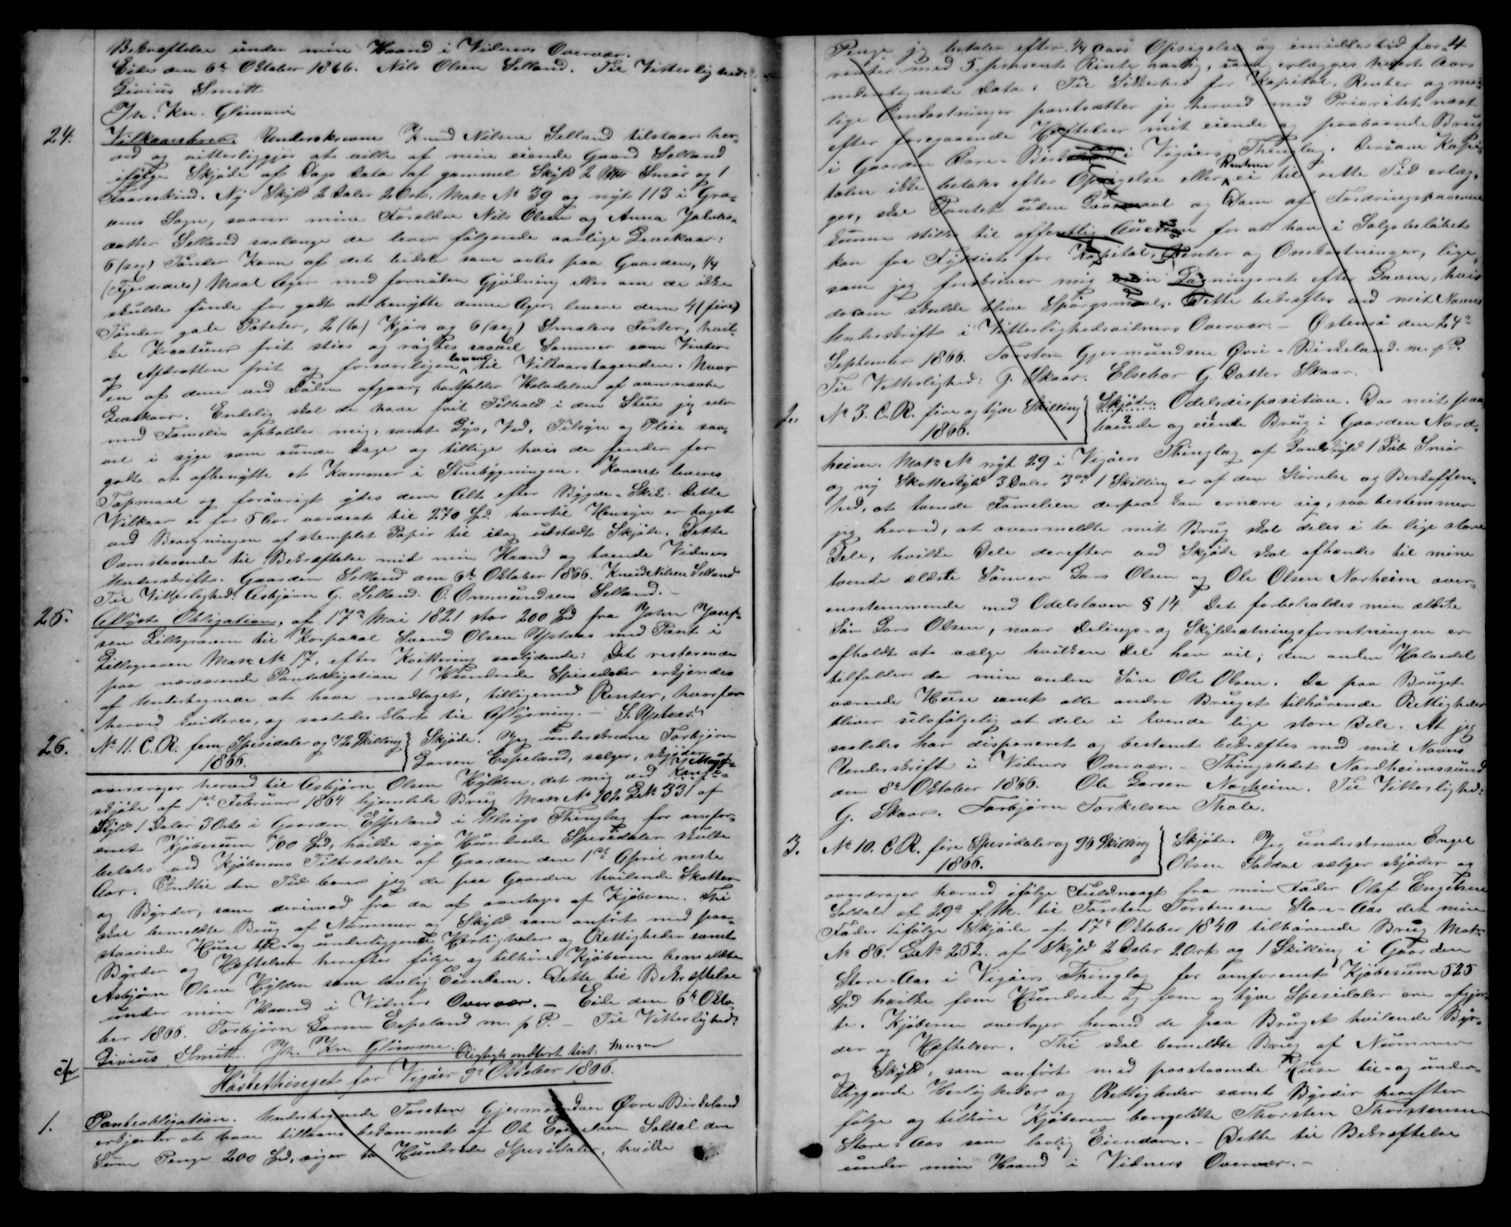 Bekræftelse under min Haand i Vidners Overvær.
Eide den 6te Oktober 1866. Nils Olsen Selland. Til Vitterlighed:
Livius Smitt.
Jh. Kn. Glimme
24. Vilkaarsbrev. Underskrevne Knud Nilsen Selland tilstaar her-
ved og vitterliggjør at ville af min eiende Gaard Selland
ifølge Skjøde af Dags Dato af gammel Skyld 2 Smør og 1
Faareskind. Ny Skyld 2 Daler 2 Ort. Matr. No 39 og nyt 113 i Gra-
vens Sogn, svarer mine Forældre Nils Olsen og Anna Jakobs-
datter Selland saalænge de lever følgende aarlige Levekaar:
6 (sex) Tønder Korn af det bedste som avles paa Gaarden, 1/4
(Fjerdedels) Maal Ager med fornøden Gjødning eller om de ikke
skulde finde for godt at benytte denne Ager, levere dem 4 (fire)
Tønder gode Poteter, 2 (to) Kjørs og 6 (sex) Smalers Foster, hvil-
ke Kreaturer frit sties og røgtes saavel Sommer som Vinter
og Afdrotten frit og forsvarligen leveres til Vilkaarstagerden. Naar
en af dem ved Døden afgaar, bortfalder Halvdelen af ovennævnte
Levekaar. Endelig skal de have frit Tilhold i den Stue jeg selv
med Familie opholder mig, samt Lys, Ved, Tilsyn og Pleie saa-
vel i syge som sunde Dage og tillige hvis de finder for
godt at afbenytte et Kammer i Stuebygningen. Kornet leveres
Topmaal og forøvrigt ydes dem Alt efter Bygde-Skik. Dette
Vilkaar er for 5 Aar værdsat til 270 Spd. hvortil Hensyn er taget
ved Beregningen af stemplet Papir til idag udstedt Skjøde. Dette
Ovenstaaende til Bekræftelse med min Haand og tvende Vidners
Underskrift. Gaarden Selland den 6te Oktober 1866. Knud Nilsen Selland
Til Vitterlighed: Asbjørn G. Selland. O. Omundsen Selland.
25. Aflyst Obligation, af 17de Mai 1821 stor 200 Spd fra John Josef-
sen Lillegraven til Korporal Svend Olsen Opstaas med Pant i
Lillegraven Matr. No 17, efter Kvittering saalydende: Det resterende
paa nærværende Pantobligation 1 Hundrede Spesidaler erkjendes
af Undertegnede at have modtaget, tilligemed Renter, hvorfor
herved kvitteres, og saaledes klart til Aflysning. S. Opstad
26. No 11. C. R. fem Spesidaler og 72 Skilling
1866.
Skjøde. Jeg underskrevne Torbjørn
Larsen Espeland, sælger, skjøder og
overdrager herved til Asbjørn Olsen Hylden, det mig ved Mage-
skjøde af 1ste Februar 1864 hjemlede Brug Matr. No 102 Løb. 331 af
Skyld 1 Daler 3 Ort i Gaarden Espeland i Ulvigs Thinglag for omfor-
enet Kjøbesum 700 Spd, hvilke syv Hundrede Spesidaler skulle
betales ved Kjøberens Tiltrædelse af Gaarden den 1ste April neste
Aar. Indtil den Tid bærer jeg de paa Gaarden hvilende Skatter
og Byrder, som derimod fra da af overtages af Kjøberen. Thi
skal bemeldte Brug af Nummer og Skyld som anført med paa-
staaende Huse til og underliggende Herligheder og Rettigheder samt
Byrder og Hæftelser herefter følge og tilhøre Kjøberen bemeldte
Asbjørn Olsen Hylden som lovlig Eiendom. Dette til Bekræftelse
under min Haand i Vidners Overvær. – Eide den 6te Okto-
ber 1866. Torbjørn Larsen Espeland m. p. P. – Til Vitterlighed:
Livius Smitt. Jh. Kn. Glimme.
Høstethinget for Vigøer 9de Oktober 1866.
1. Pantobligation. Undertegnede Torsten Gjermundsen Øvre-Birkeland
erkjender at have tillaans bekommet af Ole Engelsen Soldal den
Sum Penge 200 Spd, siger to Hundrede Spesidaler, hvilke
4
Penge jeg betaler efter 1/4 Aars Opsigelse og imidlertid for-
renter med 5 procent Rente aarlig, som erlægges hvert Aars
nedentegnede Dato. Til Sikkerhed for Kapital, Renter og mu-
lige Omkostninger pantsætter jeg herved med Prioritet næst
efter foregaaende Hæftelser mit eiende og paaboende Brug
i Gaarden Øvre-Birkeland i Vigøers Thinglag. Dersom Kapi-
talen ikke betales efter Opsigelse eller Renten ei til rette Tid erlæg-
ges, skal Pantet uden Lovmaal og Dom af Fordringshaveren
kunne stilles til offentlig Auktion for at han i Salgsbeløbets
kan faa Fyldest for Kapital, Renter og Omkostninger, lige-
som jeg forskriver mig Søgningsret efter Loven, hvis
derom skulde blive Spørgsmaal. Dette bekræftes ved mit Navns
Underskrift i Vitterlighedsvidners Overvær. – Østensø den 24de
September 1866. Torsten Gjermundsen Øvre-Birkeland. m. p. P.
Til Vitterlighed: G. Skaar. Elsebar G. Datter Skaar.
2. No 3. C. R. fire og tyve Skilling
1866.
Skjøde. Odelsdisposition. Da mit paa-
boende og eiende Brug i Gaarden Nord-
heim. Matr. No nyt 29 i Vigøers Thinglag af Landskyld 1 Løb Smør
og ny Skatteskyld 3 Daler 3 Ort 1 Skilling er af den Størrelse og Beskaffen-
hed, at tvende Familier derpaa kan ernære sig, saa bestemmer
jeg herved, at ovenmeldte mit Brug skal deles i to lige store
Dele, hvilke Dele derefter ved Skjøde skal afhændes til mine
tvende ældste Sønner Lars Olsen og Ole Olsen Norheim over-
ensstemmende med Odelsloven § 14. Det forbeholdes min ældste
Søn Lars Olsen, naar Delings- og Skyldsætningsforretningen er
afholdt at vælge hvilken Del han vil; den anden Halvedel
tilfalder da min anden Søn Ole Olsen. De paa Bruget
værende Huse samt alle andre Bruget tilhørende Rettigheder
bliver selvfølgelig at dele i tvende lige store Dele. At jeg
saaledes har disponeret og bestemt bekræftes med mit Navns
Underskrift i Vidners Overvær. – Thingstedet Nordheimssund
den 8de Oktober 1866. Ole Larsen Norheim. Til Vitterlighed:
G. Skaar. Torbjørn Torkelsen Thole.
3. No 10. C. R. fire Spesidaler og 96 Skilling
1866.
Skjøde. Jeg underskrevne Engel
Olsen Soldal sælger skjøder og
overdrager herved ifølge Fuldmagt fra min Fader Olaf Engelsen
Soldal af 29de f. M. til Torsten Torstensen Store-Aas det min
Fader ifølge Skjøde af 17de Oktober 1840 tilhørende Brug Matr.
No 86. Løb. 252. af Skyld 2 Daler 2 Ort og 1 Skilling i Gaarden
Store-Aas i Vigøers Thinglag for omforenet Kjøbesum 525
Spd hvilke fem Hundrede og fem og tyve Spesidaler ere afgjor-
te. Kjøberen overtager herved de paa Bruget hvilende Byr-
der og Hæftelser. Thi skal bemeldte Brug af Nummer
og Skyld, som anført med paastaaende Huse til- og under-
liggende Herligheder og Rettigheder samt Byrder herefter
følge og tilhøre Kjøberen bemeldte Thorsten Thorstensen
Store-Aas som lovlig Eiendom. – Dette til Bekræftelse
under min Haand i Vidners Overvær. –